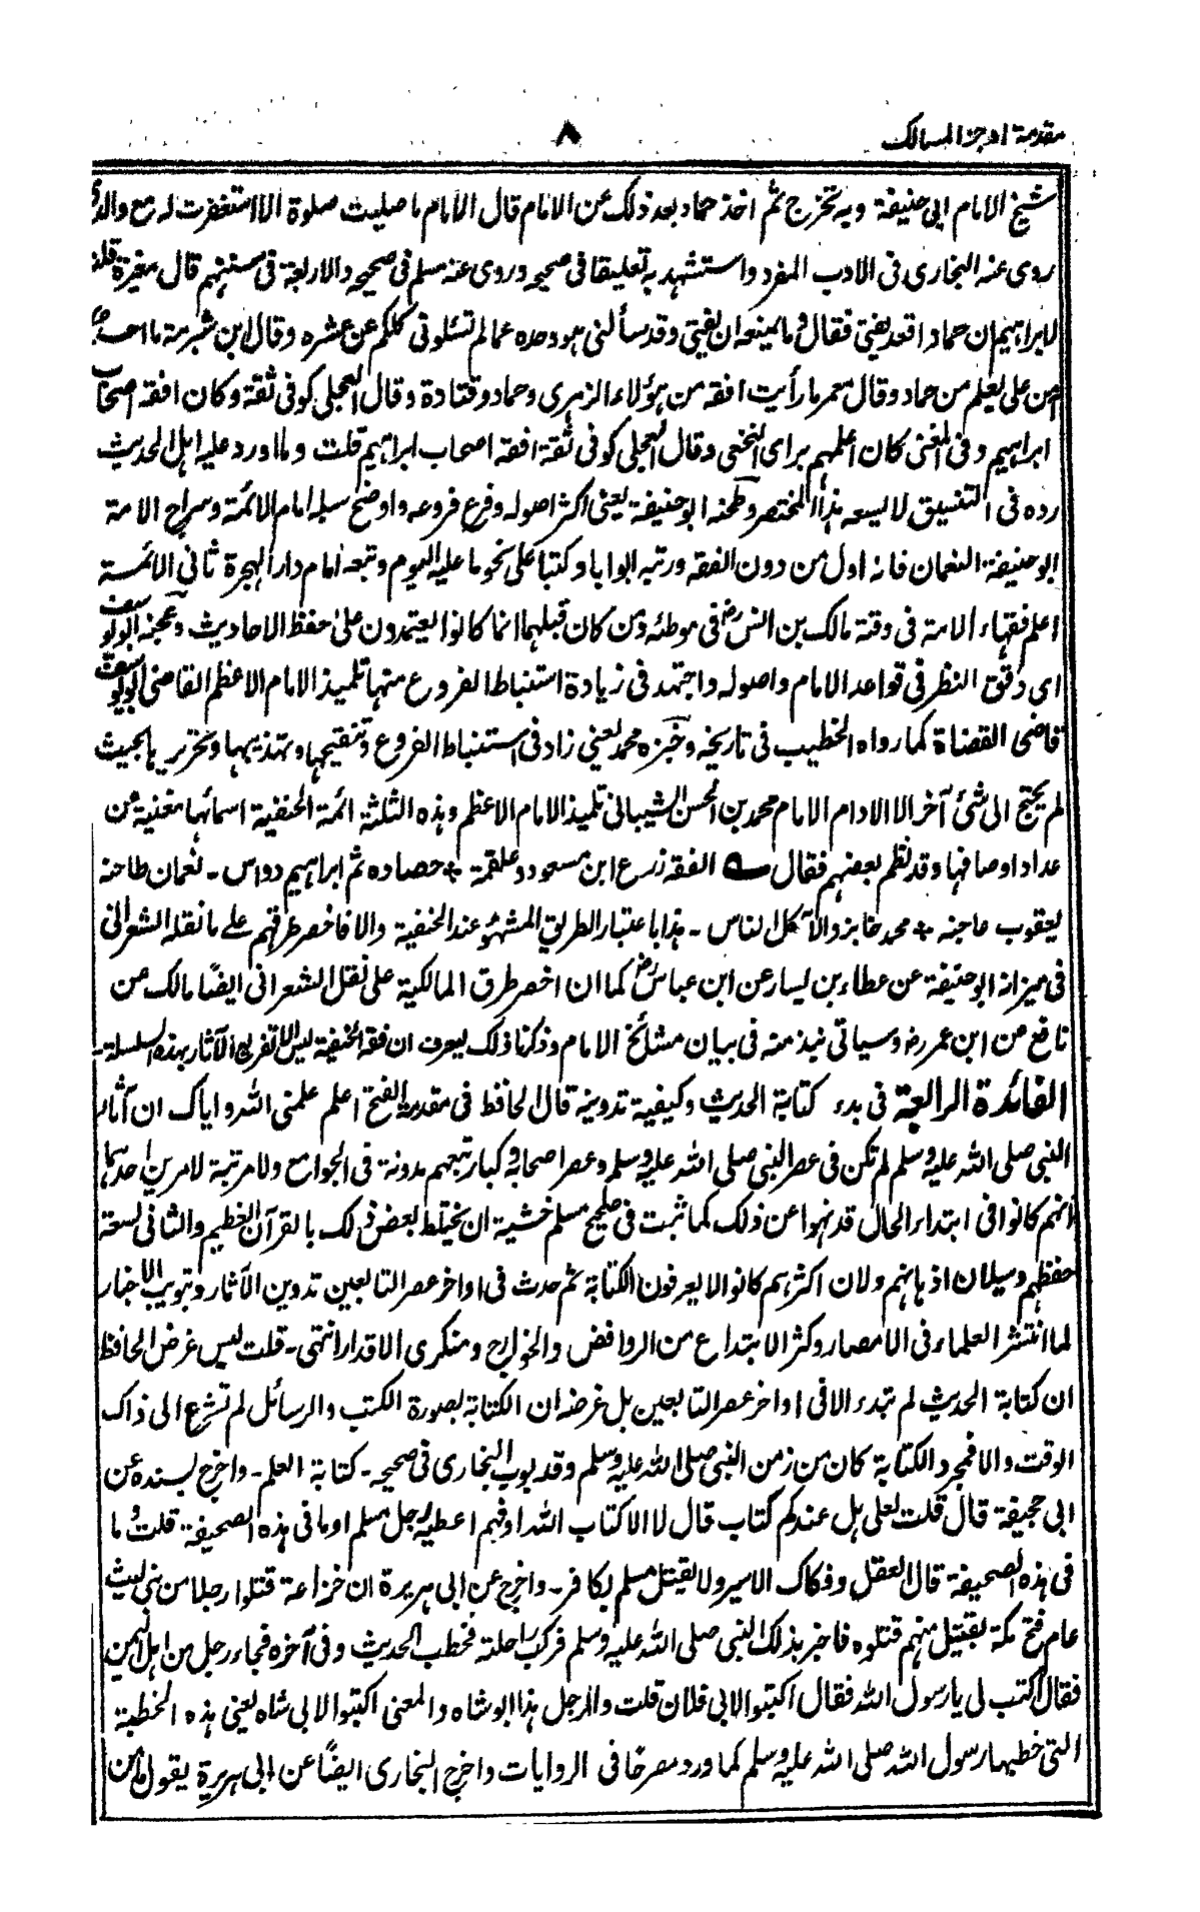 مقدمة اوجز المسالك
٨
شيخ الامام ابى حنيفة وبه تخرج ثم اخذ حماد بعد ذلك عن الامام قال الامام ما صليت صلوة الا استغفرت له مع والدى
روى عنه البخارى فى الادب المفرد واستشهد به تعليقا فى صحيحه وروى عنه مسلم فى صحيحه والاربعة فى سننهم قال مغيرة قلت
لابراهيم ان حمادا قعد يفتى فقال وما يمنعه ان يفتى وقد سألنى هو وحده عما لم تسئلونى كلكم عن عشره وقال ابن شبرمة ما احد
امن على بعلم من حماد وقال معمر ما رأيت افقه من هؤلاء الزهرى وحماد وقتادة وقال العجلى كوفى ثقة وكان افقه اصحاب
ابراهيم وفى المغنى كان اعلمهم براى النخعى وقال العجلى كوفى ثقة افقه اصحاب ابراهيم قلت وما اورد عليه اهل الحديث
رده فى التنسيق لا يسعه هذا المختصر وطحنه ابو حنيفة يعنى اكثر اصوله وفرع فروعه واوضح سبله امام الائمة وسراج الامة
ابو حنيفة النعمان فانه اول من دون الفقه ورتبه ابوابا وكتبا على نحو ما عليه اليوم وتبعه امام دار الهجرة ثانى الائمة
اعلم فقهاء الامة فى وقته مالك بن انس رض فى موطئه ومن كان قبلهما انما كانوا يعتمدون على حفظ الاحاديث وعجنه ابو يوسف
اى دقق النظر فى قواعد الامام واصوله واجتهد فى زيادة استنباط الفروع منها تلميذ الامام الاعظم القاضى ابو يوسف
قاضى القضاة كما رواه الخطيب فى تاريخه وخبزه محمد يعنى زاد فى استنباط الفروع وتنقيحها وتهذيبها وتحريرها بحيث
لم يحتج الى شئ آخر الا الادام الامام محمد بن الحسن الشيبانى تلميذ الامام الاعظم وهذه الثلثة ائمة الحنفية اسمائها مغنية عن
عداد اوصافها وقد نظم بعضهم فقال ؎ الفقه زرع ابن مسعود وعلقمة * حصاده ثم ابراهيم دواس - نعمان طاحنه
يعقوب عاجنه * محمد خابز والآكل الناس - هذا باعتبار الطريق المشهور عند الحنفية والا فاخصر طرقهم على ما نقله الشعرانى
فى ميزانه ابو حنيفة عن عطاء بن يسار عن ابن عباس رض كما ان اخصر طرق المالكية على نقل الشعرانى ايضًا مالك عن
نافع عن ابن عمر رض وسياتى نبذ منه فى بيان مشائخ الامام وذكرنا ذلك ليعرف ان فقه الحنفية ليس الا تفريع الآثار بهذه السلسلة -
الفائدة الرابعة فى بدء كتابة الحديث وكيفية تدوينه قال الحافظ فى مقدمة الفتح اعلم علمنى الله واياك ان آثار
النبى صلى الله عليه وسلم لم تكن فى عصر النبى صلى الله عليه وسلم وعصر اصحابه وكبار تبعهم مدونة فى الجوامع ولا مرتبة لامرين احدهما
انهم كانوا فى ابتداء الحال قد نهوا عن ذلك كما ثبت فى صحيح مسلم خشية ان يختلط بعض ذلك بالقرآن العظيم والثانى لسعة
حفظهم وسيلان اذهانهم ولان اكثرهم كانوا لا يعرفون الكتابة ثم حدث فى اواخر عصر التابعين تدوين الآثار وتبويب الاخبار
لما انتشر العلماء فى الامصار وكثر الابتداع من الروافض والخوارج ومنكرى الاقدار انتهى - قلت ليس غرض الحافظ
ان كتابة الحديث لم تبدء الا فى اواخر عصر التابعين بل غرضه ان الكتابة بصورة الكتب والرسائل لم تشرع الى ذاك
الوقت والا فمجرد الكتابة كان من زمن النبى صلى الله عليه وسلم وقد بوب البخارى فى صحيحه - كتابة العلم - واخرج بسنده عن
ابى جحيفة قال قلت لعلى هل عندكم كتاب قال لا الا كتاب الله او فهم اعطيه رجل مسلم او ما فى هذه الصحيفة قلت وما
فى هذه الصحيفة قال العقل وفكاك الاسير ولا يقتل مسلم بكافر - واخرج عن ابى هريرة ان خزاعة قتلوا رجلا من بنى ليث
عام فتح مكة بقتيل منهم قتلوه فاخبر بذلك النبى صلى الله عليه وسلم فركب راحلته فخطب الحديث وفى آخره فجاء رجل من اهل اليمن
فقال اكتب لى يا رسول الله فقال اكتبوا لابى فلان قلت والرجل هذا ابو شاه والمعنى اكتبوا لابى شاه يعنى هذه الخطبة
التى خطبها رسول الله صلى الله عليه وسلم كما ورد مصرحًا فى الروايات واخرج البخارى ايضًا عن ابى هريرة يقول ما من